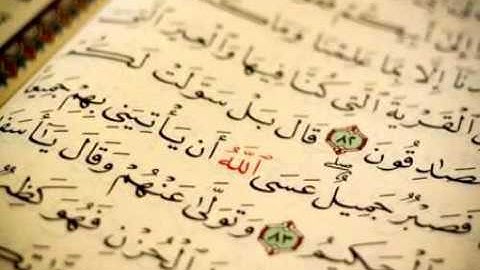 إِلَىٰٓ أَبِيكُمْ
إِلَّا بِمَا عَلِمْنَا وَمَا
ٱلْقَرْيَةَ ٱلَّتِى كُنَّا فِيهَا وَٱلْعِيرَ ٱلَّتِىٓ
لَصَـٰدِقُونَ ٨٢ قَالَ بَلْ سَوَّلَتْ لَكُمْ
فَصَبْرٌ جَمِيلٌ عَسَى ٱللَّهُ أَن يَأْتِيَنِى بِهِمْ جَمِيعًا
ٱلْحَكِيمُ ٨٣ وَتَوَلَّىٰ عَنْهُمْ وَقَالَ يَـٰٓأَسَفَىٰ
ٱلْحُزْنِ فَهُوَ كَظِيمٌ